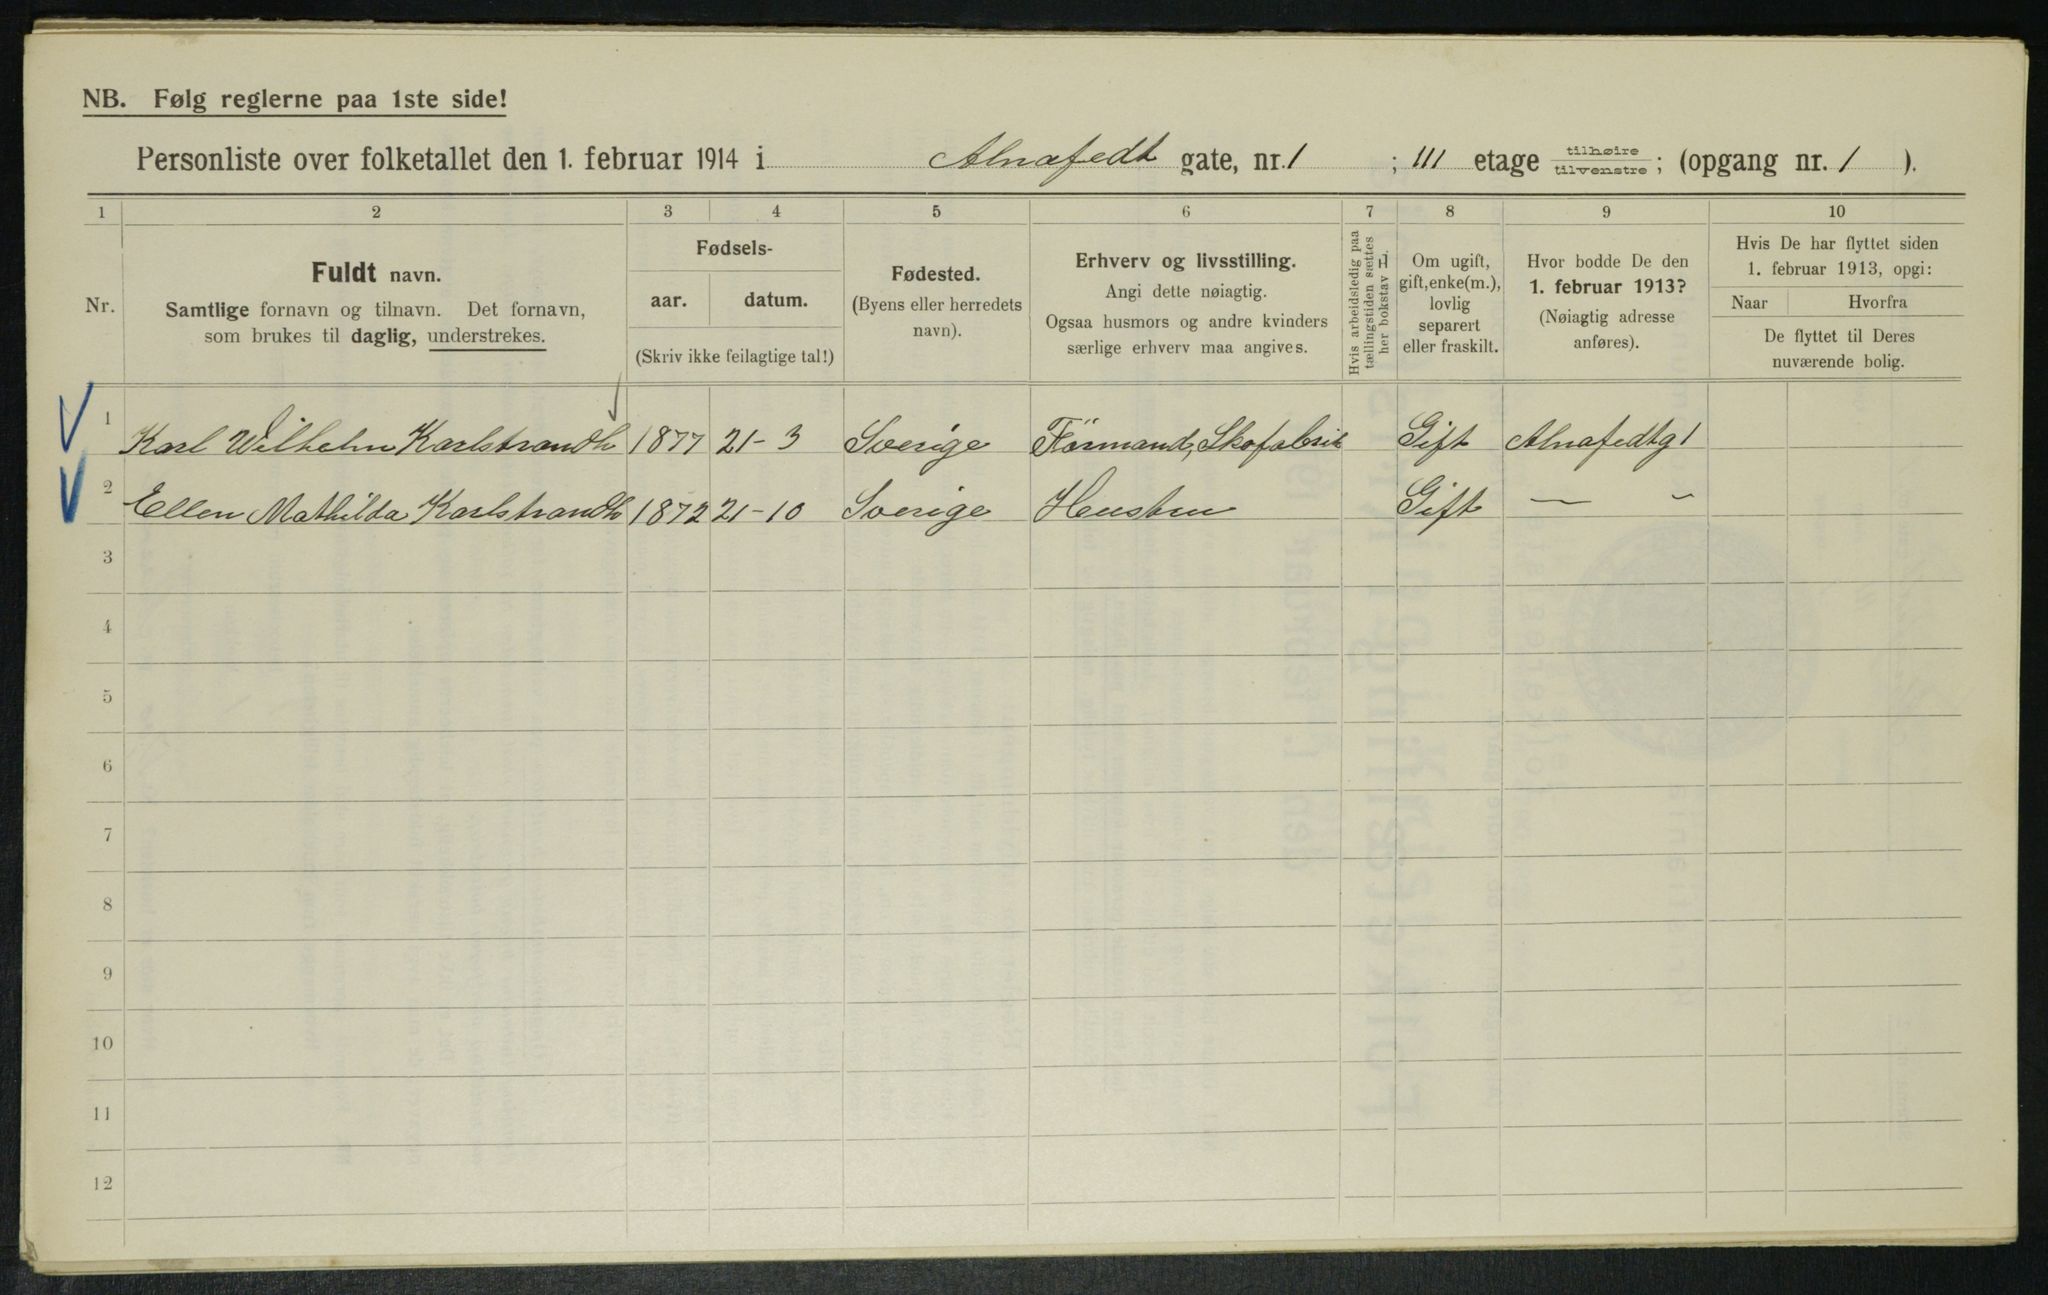 NB. Følg reglerne paa 1ste side!
Personliste over folketallet den 1. februar 1914 i Alnafedt gate, nr. 1 ; III etage tilhøire/tilvenstre; (opgang nr. 1 ).
1 2 3 4 5 6 7 8 9 10
Nr.
Fuldt navn.
Samtlige fornavn og tilnavn. Det fornavn,
som brukes til daglig, understrekes.
Fødsels-
aar. datum.
(Skriv ikke feilagtige tal!)
Fødested.
(Byens eller herredets
navn).
Erhverv og livsstilling.
Angi dette nøiagtig.
Ogsaa husmors og andre kvinders
særlige erhverv maa angives.
Hvis arbeidsledig paa
tællingstiden sættes
her bokstav H.
Om ugift,
gift, enke(m.),
lovlig
separert
eller fraskilt.
Hvor bodde De den
1. februar 1913?
(Nøiagtig adresse
anføres).
Hvis De har flyttet siden
1. februar 1913, opgi:
Naar Hvorfra
De flyttet til Deres
nuværende bolig.
1 Karl Wilhelm Karlstrandh 1877 21-3 Sverige Förmand, Skofabrik Gift Alnafedtg 1
2 Ellen Mathilda Karlstrandh 1872 21-10 Sverige Hustru Gift — "
3
4
5
6
7
8
9
10
11
12